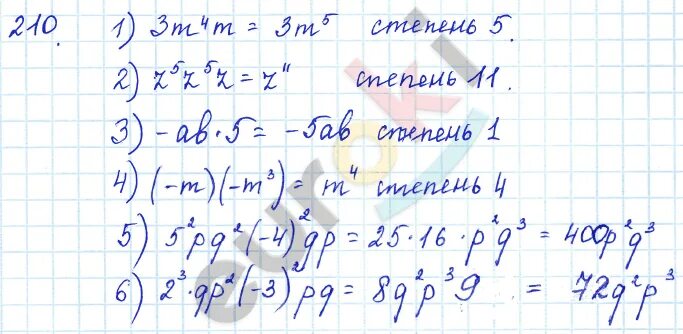 210. 1) 3m⁴m = 3m⁵ степень 5.
2) z⁵z⁵z = z¹¹ степень 11.
3) -ab·5 = -5ab степень 1
4) (-m)(-m³) = m⁴ степень 4
5) 5²pq²(-4)²qp = 25·16·p²q³ = 400p²q³
6) 2³·qp²(-3)²pq = 8q²p³9 = 72q²p³
euroki